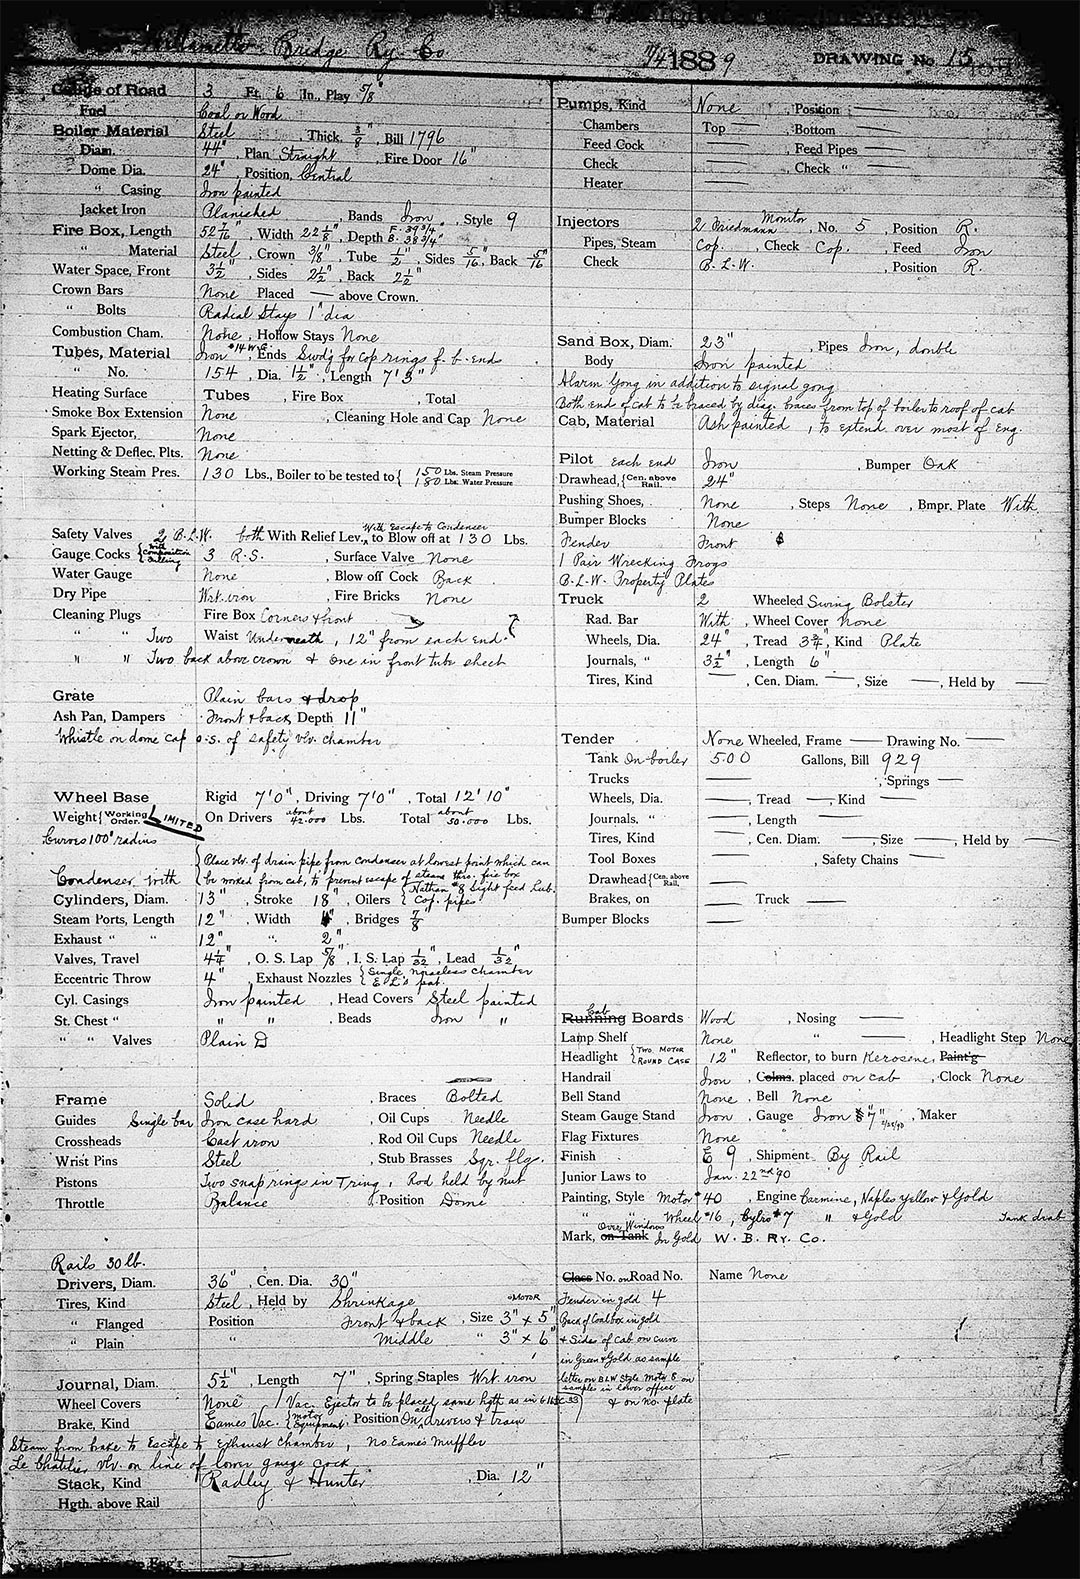 Willamette Bridge Ry. Co.
1889
DRAWING No. 15
Gauge of Road 3 Ft. 6 In., Play 5/8"
Fuel Coal or Wood
Boiler Material Steel , Thick. 3/8", Bill 1796
Diam. 44", Plan Straight , Fire Door 16"
Dome Dia. 24", Position, Central
" Casing Iron painted
Jacket Iron Planished , Bands Iron , Style 9
Fire Box, Length 52 7/16", Width 22 1/8", Depth F. 39 3/4" B. 38 3/4"
" Material Steel, Crown 3/8", Tube 1/2", Sides 5/16, Back 5/16"
Water Space, Front 3 1/2", Sides 2 1/2", Back 2 1/2"
Crown Bars None Placed — above Crown.
" Bolts Radial Stays 1" dia
Combustion Cham. None, Hollow Stays None
Tubes, Material Iron #14 W.G. Ends Swd'g for Cop rings f. b. end
" No. 154, Dia. 1 1/2", Length 7' 3"
Heating Surface Tubes , Fire Box , Total
Smoke Box Extension None , Cleaning Hole and Cap None
Spark Ejector, None
Netting & Deflec. Plts. None
Working Steam Pres. 130 Lbs., Boiler to be tested to { 150 Lbs. Steam Pressure
180 Lbs. Water Pressure
With Escape to Condenser
Safety Valves 2 B.L.W. both With Relief Lev., to Blow off at 130 Lbs.
Gauge Cocks { With Composition 3 R.S. , Surface Valve None
Water Gauge None , Blow off Cock Back
Dry Pipe Wrt. iron , Fire Bricks None
Cleaning Plugs Fire Box Corners & front
" " Two Waist Underneath, 12" from each end.
" " Two back above crown & one in front tube sheet
Grate Plain bars & drop
Ash Pan, Dampers Front & back Depth 11"
Whistle on dome cap o.s. of safety vlv. chamber
Wheel Base Rigid 7'0", Driving 7'0", Total 12' 10"
Weight { Working Order. LIMITED On Drivers about 42.000 Lbs. Total about 50.000 Lbs.
Curves 100' radius
Place vlv. of drain pipe from condenser at lowest point which can
Condenser With be worked from cab, to prevent escape of steam thro. fire box
Cylinders, Diam. 13", Stroke 18", Oilers { Nathan #8 Sight feed Lub. Cop. pipes
Steam Ports, Length 12", Width , Bridges 7/8"
Exhaust " " 12" " 2"
Valves, Travel 4 1/4", O. S. Lap 5/8", I. S. Lap 1/32", Lead 1/32"
Eccentric Throw 4", Exhaust Nozzles { Single noiseless chamber
pat.
Cyl. Casings Iron painted , Head Covers Steel painted
St. Chest " " " , Beads Iron "
" " Valves Plain D
Frame Solid , Braces Bolted
Guides Single bar Iron case hard , Oil Cups Needle
Crossheads Cast iron , Rod Oil Cups Needle
Wrist Pins Steel , Stub Brasses Sqr. flg.
Pistons Two snap rings in T ring, Rod held by nut
Throttle Balance , Position Dome
Rails 30 lb.
Drivers, Diam. 36", Cen. Dia. 30"
Tires, Kind Steel, Held by Shrinkage
" Flanged Position Front & back , Size 3" x 5"
" Plain " Middle " 3" x 6"
Journal, Diam. 5 1/2", Length 7", Spring Staples Wrt. iron
Wheel Covers None 1 Vac. Ejector to be placed same hgth as in
Brake, Kind Eames Vac. { motor Equipment. Position On all drivers & train
Steam from brake to Escape to Exhaust chamber, No Eames Muffler
Le Chatelier vlv. on line of lower gauge cock
Stack, Kind Radley & Hunter , Dia. 12"
Hgth. above Rail
Pumps, Kind None , Position —
Chambers Top — , Bottom —
Feed Cock — , Feed Pipes —
Check — , Check " —
Heater —
Injectors 2 Friedmann Monitor , No. 5 , Position R.
Pipes, Steam Cop. , Check Cop. , Feed Iron
Check B.L.W. , Position R.
Sand Box, Diam. 23" , Pipes Iron, double
Body Iron painted
Alarm Gong in addition to signal gong
Both end of cab to be braced by diag. braces from top of boiler to roof of cab
Cab, Material Ash painted , to extend over most of Eng.
Pilot each end Iron , Bumper Oak
Drawhead, { Cen. above Rail. 24"
Pushing Shoes, None , Steps None , Bmpr. Plate With
Bumper Blocks None
Fender Front
1 Pair Wrecking Frogs
B.L.W. Property Plates
Truck 2 Wheeled Swing Bolster
Rad. Bar With , Wheel Cover None
Wheels, Dia. 24", Tread 3 3/4", Kind Plate
Journals, " 3 1/2", Length 6"
Tires, Kind — , Cen. Diam. —, Size —, Held by —
Tender None Wheeled, Frame — Drawing No. —
Tank On boiler 500 Gallons, Bill 929
Trucks — , Springs —
Wheels, Dia. —, Tread —, Kind —
Journals. " —, Length —
Tires, Kind —, Cen. Diam. —, Size —, Held by —
Tool Boxes — , Safety Chains —
Drawhead { Cen. above Rail, —
Brakes, on — Truck —
Bumper Blocks —
Cab
Running Boards Wood , Nosing —
Lamp Shelf None " — , Headlight Step None
Headlight { TWO MOTOR ROUND CASE 12" Reflector, to burn Kerosene, Paint'g
Handrail Iron , Colms. placed on cab , Clock None
Bell Stand None , Bell None
Steam Gauge Stand Iron , Gauge Iron 7" , Maker
Flag Fixtures None
Finish E 9 , Shipment By Rail
Junior Laws to Jan. 22nd '90
Painting, Style Motor #40 , Engine Carmine, Naples Yellow & Gold
" " Wheel #16, Cylrs #7 " & Gold Tank drab
Over Windows
Mark, on Tank In Gold W. B. RY. CO.
Class No. on Road No. Name None
Fender in gold 4
Back of Coal box in gold
& Sides of Cab on curve
in Green & Gold as sample
letter on B L W Style Motr 8 on
sample in lower office
& on no. plate